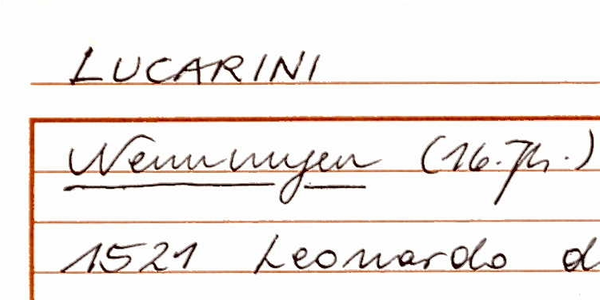 LUCARINI
Nennungen (16. Jh.)
1521 Leonardo d